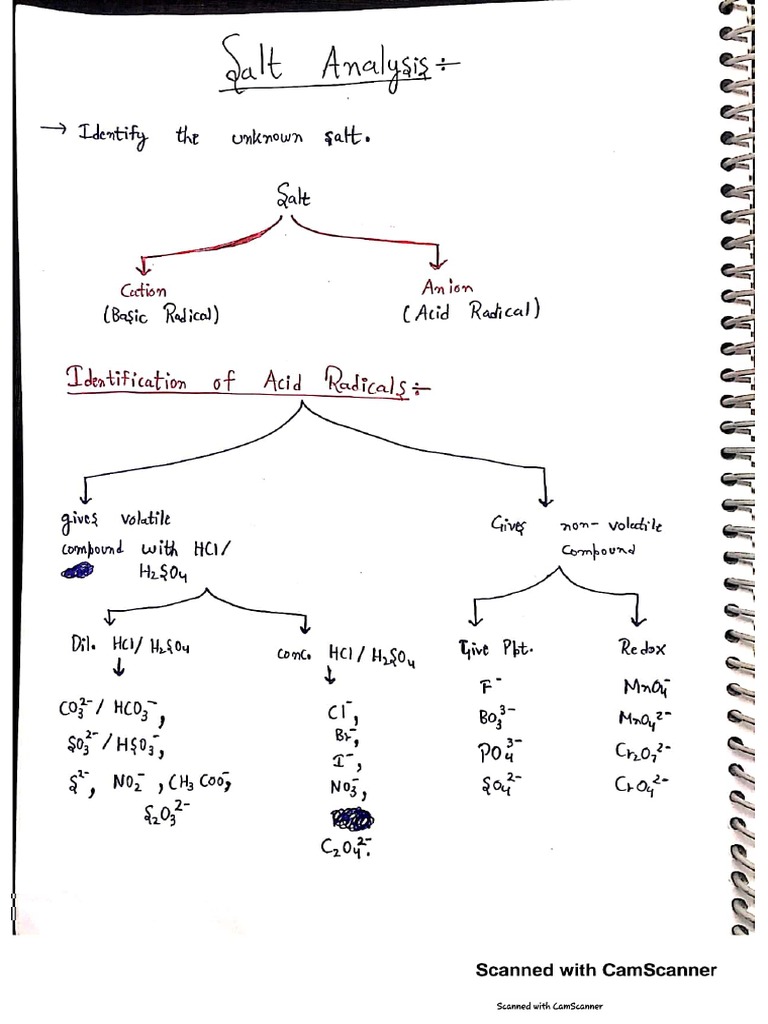 Salt Analysis :-
→ Identify the unknown salt.
Salt
Cation Anion
(Basic Radical) (Acid Radical)
Identification of Acid Radicals :-
gives volatile
compound with HCl/
H₂SO₄
Gives non-volatile
Compound
Dil. HCl/H₂SO₄
conc. HCl/H₂SO₄
Give Ppt.
Redox
CO₃²⁻/HCO₃⁻,
SO₃²⁻/HSO₃⁻,
S²⁻, NO₂⁻, CH₃COO⁻,
S₂O₃²⁻
Cl⁻,
Br⁻,
I⁻,
NO₃⁻,
C₂O₄²⁻.
F⁻
BO₃³⁻
PO₄³⁻
SO₄²⁻
MnO₄⁻
MnO₄²⁻
Cr₂O₇²⁻
CrO₄²⁻
Scanned with CamScanner
Scanned with CamScanner